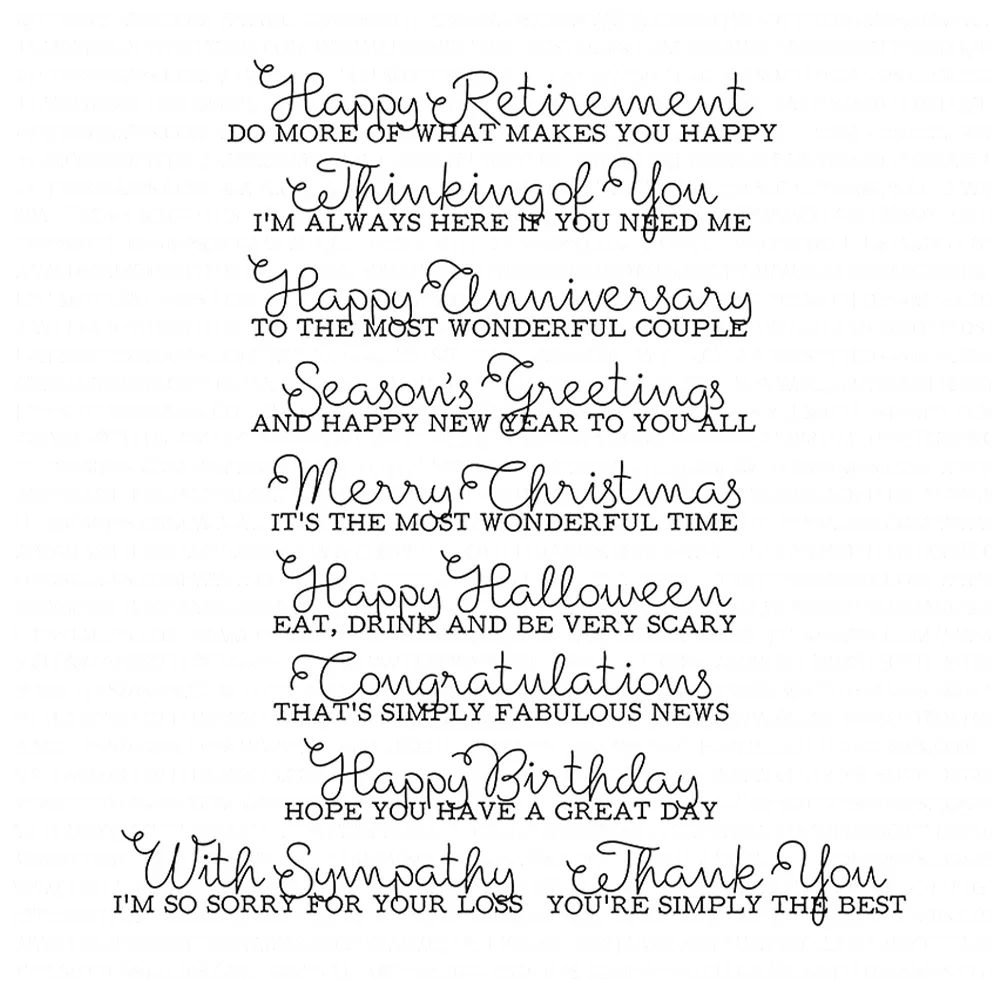 Happy Retirement
DO MORE OF WHAT MAKES YOU HAPPY
Thinking of You
I'M ALWAYS HERE IF YOU NEED ME
Happy Anniversary
TO THE MOST WONDERFUL COUPLE
Season's Greetings
AND HAPPY NEW YEAR TO YOU ALL
Merry Christmas
IT'S THE MOST WONDERFUL TIME
Happy Halloween
EAT, DRINK AND BE VERY SCARY
Congratulations
THAT'S SIMPLY FABULOUS NEWS
Happy Birthday
HOPE YOU HAVE A GREAT DAY
With Sympathy
I'M SO SORRY FOR YOUR LOSS
Thank You
YOU'RE SIMPLY THE BEST